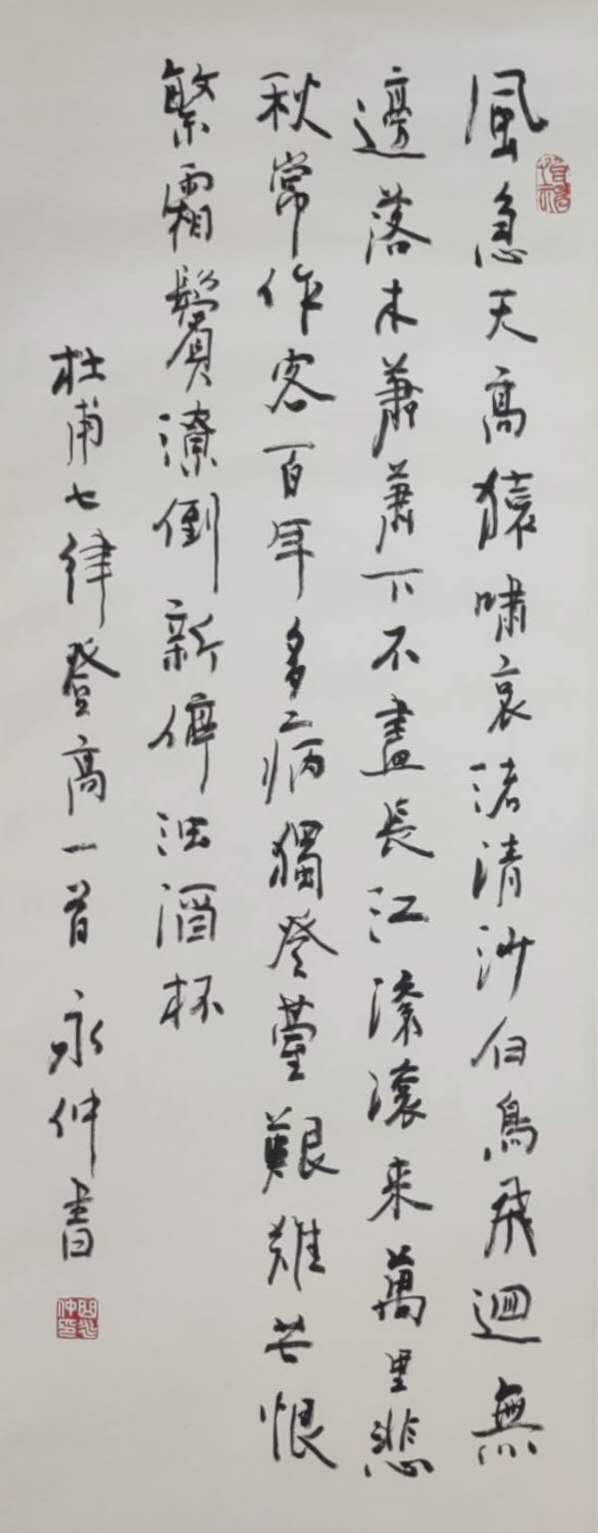 風急天高猿嘯哀渚清沙白鳥飛迴無
邊落木蕭蕭下不盡長江滾滾来萬里悲
秋常作客百年多病獨登臺艱難苦恨
繁霜鬢潦倒新停浊酒杯
杜甫七律登高一首 永仲書